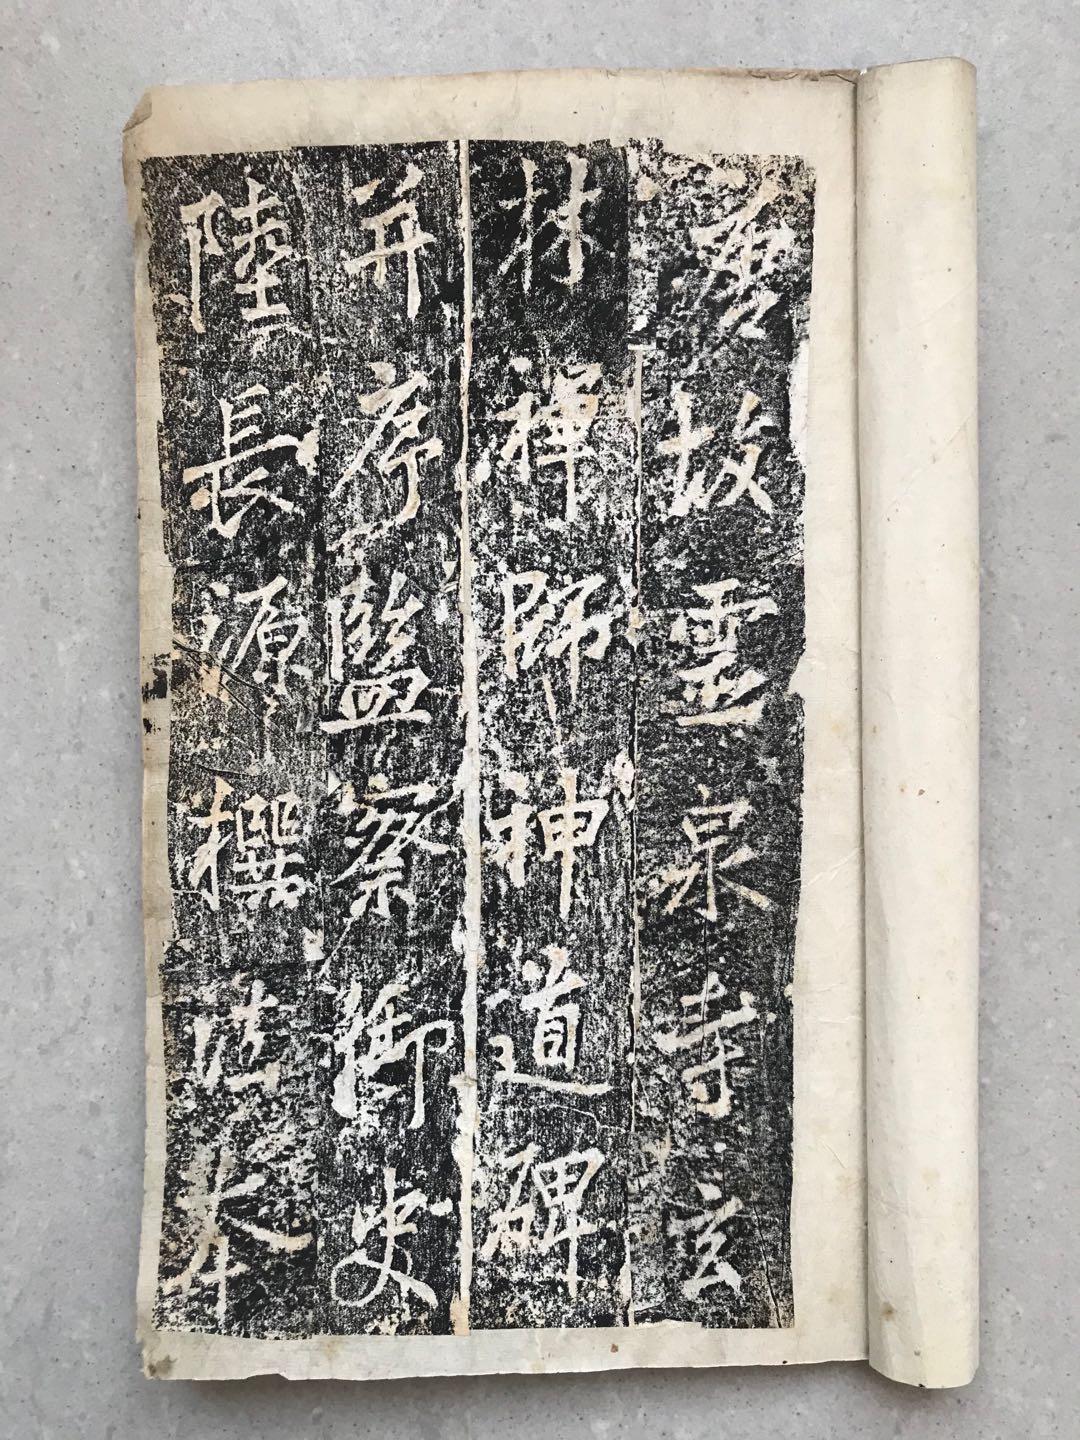 唐故靈泉寺玄
林禪師神道碑
并序監察御史
陸長源撰法本